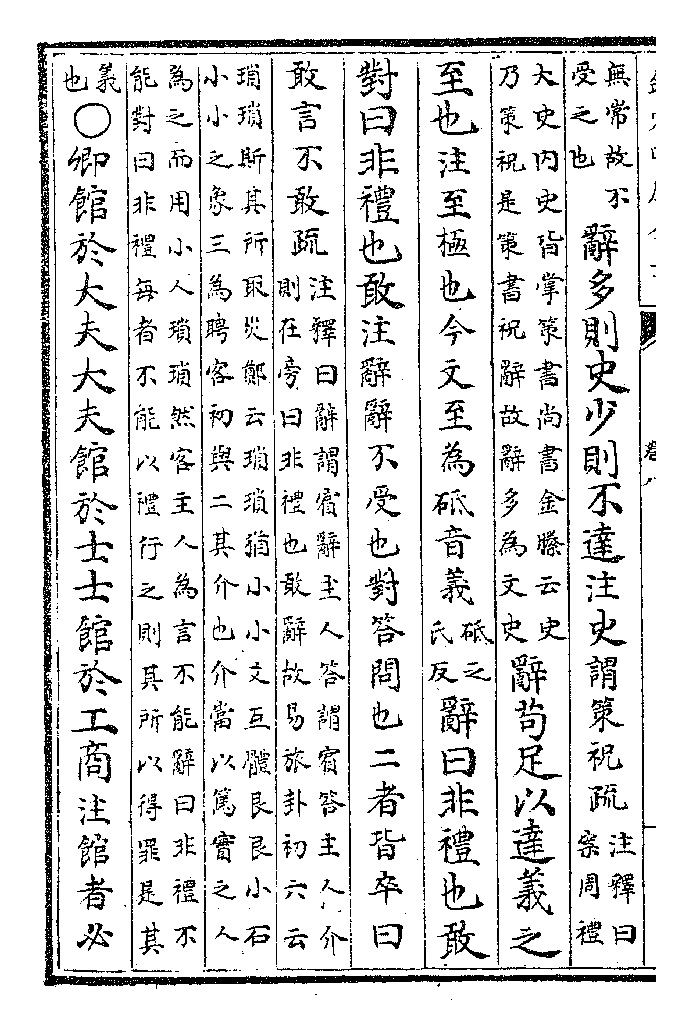 無常故不
受之也
辭多則史少則不達注史謂策祝疏
注釋曰
案周禮
大史内史皆掌策書尚書金縢云史
乃策祝是策書祝辭故辭多為文史
辭苟足以達義之
至也注至極也今文至為砥音義
砥之
氏反
辭曰非禮也敢
對曰非禮也敢注辭辭不受也對答問也二者皆卒曰
敢言不敢疏
注釋曰辭謂賓辭主人答謂賓答主人介
則在旁曰非禮也敢辭故易旅卦初六云
瑣瑣斯其所取災鄭云瑣瑣猶小小文互體艮艮小石
小小之象三為聘客初與二其介也介當以篤實之人
為之而用小人瑣瑣然客主人為言不能辭曰非禮不
能對曰非禮每者不能以禮行之則其所以得罪是其
義
也
○卿館於大夫大夫館於士士館於工商注館者必